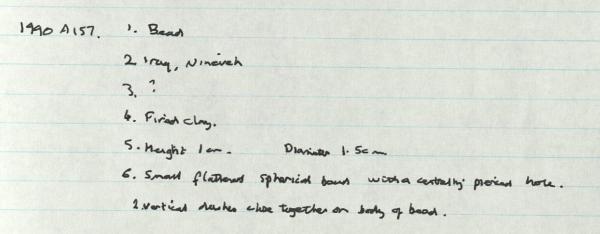 1990 A157. 1. Bead
2 Iraq, Nineveh
3. ?
4. Fired clay.
5. Height 1cm. Diameter 1.5cm
6. Small flattened spherical bead with a centrally pierced hole.
2 vertical dashes close together on body of bead.